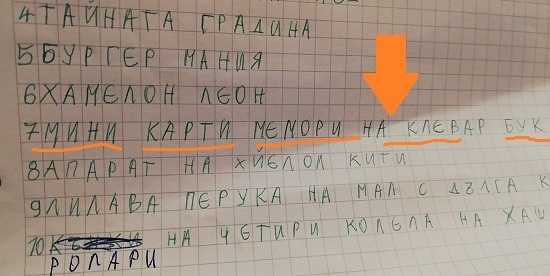 4 ТАЙНАГА ГРАДИНА
5 БУРГЕР МАНИЯ
6 ХАМЕЛОН ЛЕОН
7 МИНИ КАРТИ МЕМОРИ НА КЛЕВАР БУК
8 АПАРАТ НА ХЙЕЛОЛ КИТИ
9 ЛИЛАВА ПЕРУКА НА МАЛ С ДЪЛГА К
10 НА ЧЕТИРИ КОЛЕЛА НА ХАШ
РОЛАРИ